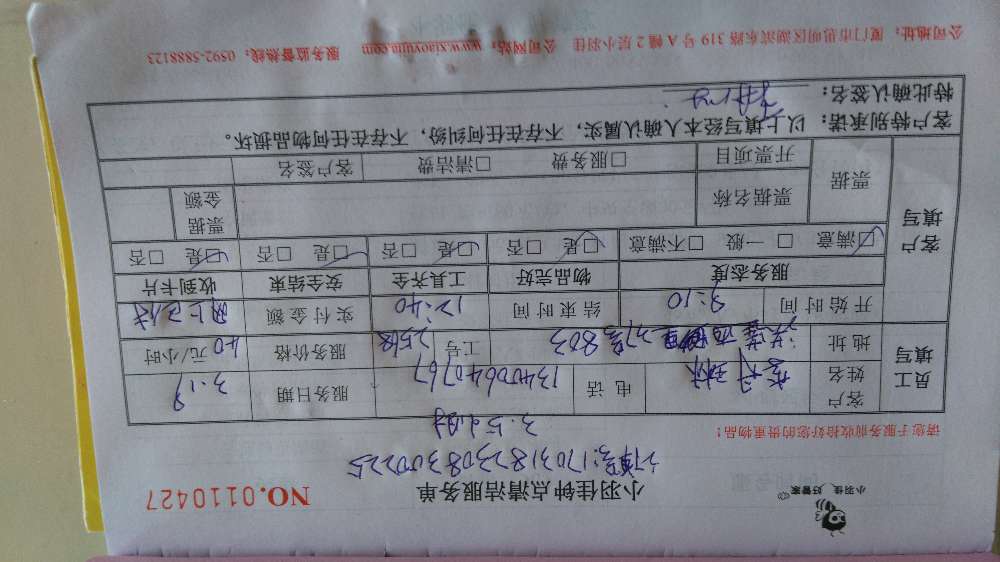 小羽佳 好管家
小羽佳钟点清洁服务单
NO.0110427
订单号:1703182308300225
请您于服务前收拾好您的贵重物品!
3.5小时
员工填写
客户姓名
电话 13400640767 服务日期 3.19
地址 803 工号 服务价格 40元/小时
开始时间 9:10 结束时间 12:40 实付金额 网上已付
客户填写
服务态度 物品完好 工具齐全 安全结束 收到卡片
☑满意 □一般 □不满意 ☑是 □否 ☑是 □否 ☑是 □否 ☑是 □否
票据 票据名称 票据金额
开票项目 □服务费 □清洁费 客户签名
客户特别承诺:以上填写经本人确认属实,不存在任何纠纷,不存在任何物品损坏。
特此确认签名:
公司地址:厦门市思明区湖滨东路319号A幢2层小羽佳 公司网站:www.xiaoyujia.com 服务监督热线:0592-5888123